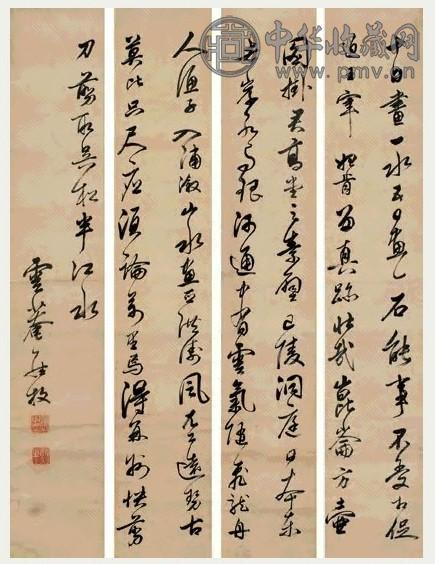 中华收藏网
www.pmv.cn
十日畫一水五日畫一石能事不受相促
迫王宰始肯留真跡壯哉崑崙方壺
圖掛君高堂之素壁巴陵洞庭日本東
赤岸水與銀河通中有雲氣隨飛龍舟
人漁子入浦漵山木盡亞洪濤風尤工遠勢古
莫比咫尺應須論萬里焉得并州快剪
刀剪取吳松半江水
雲